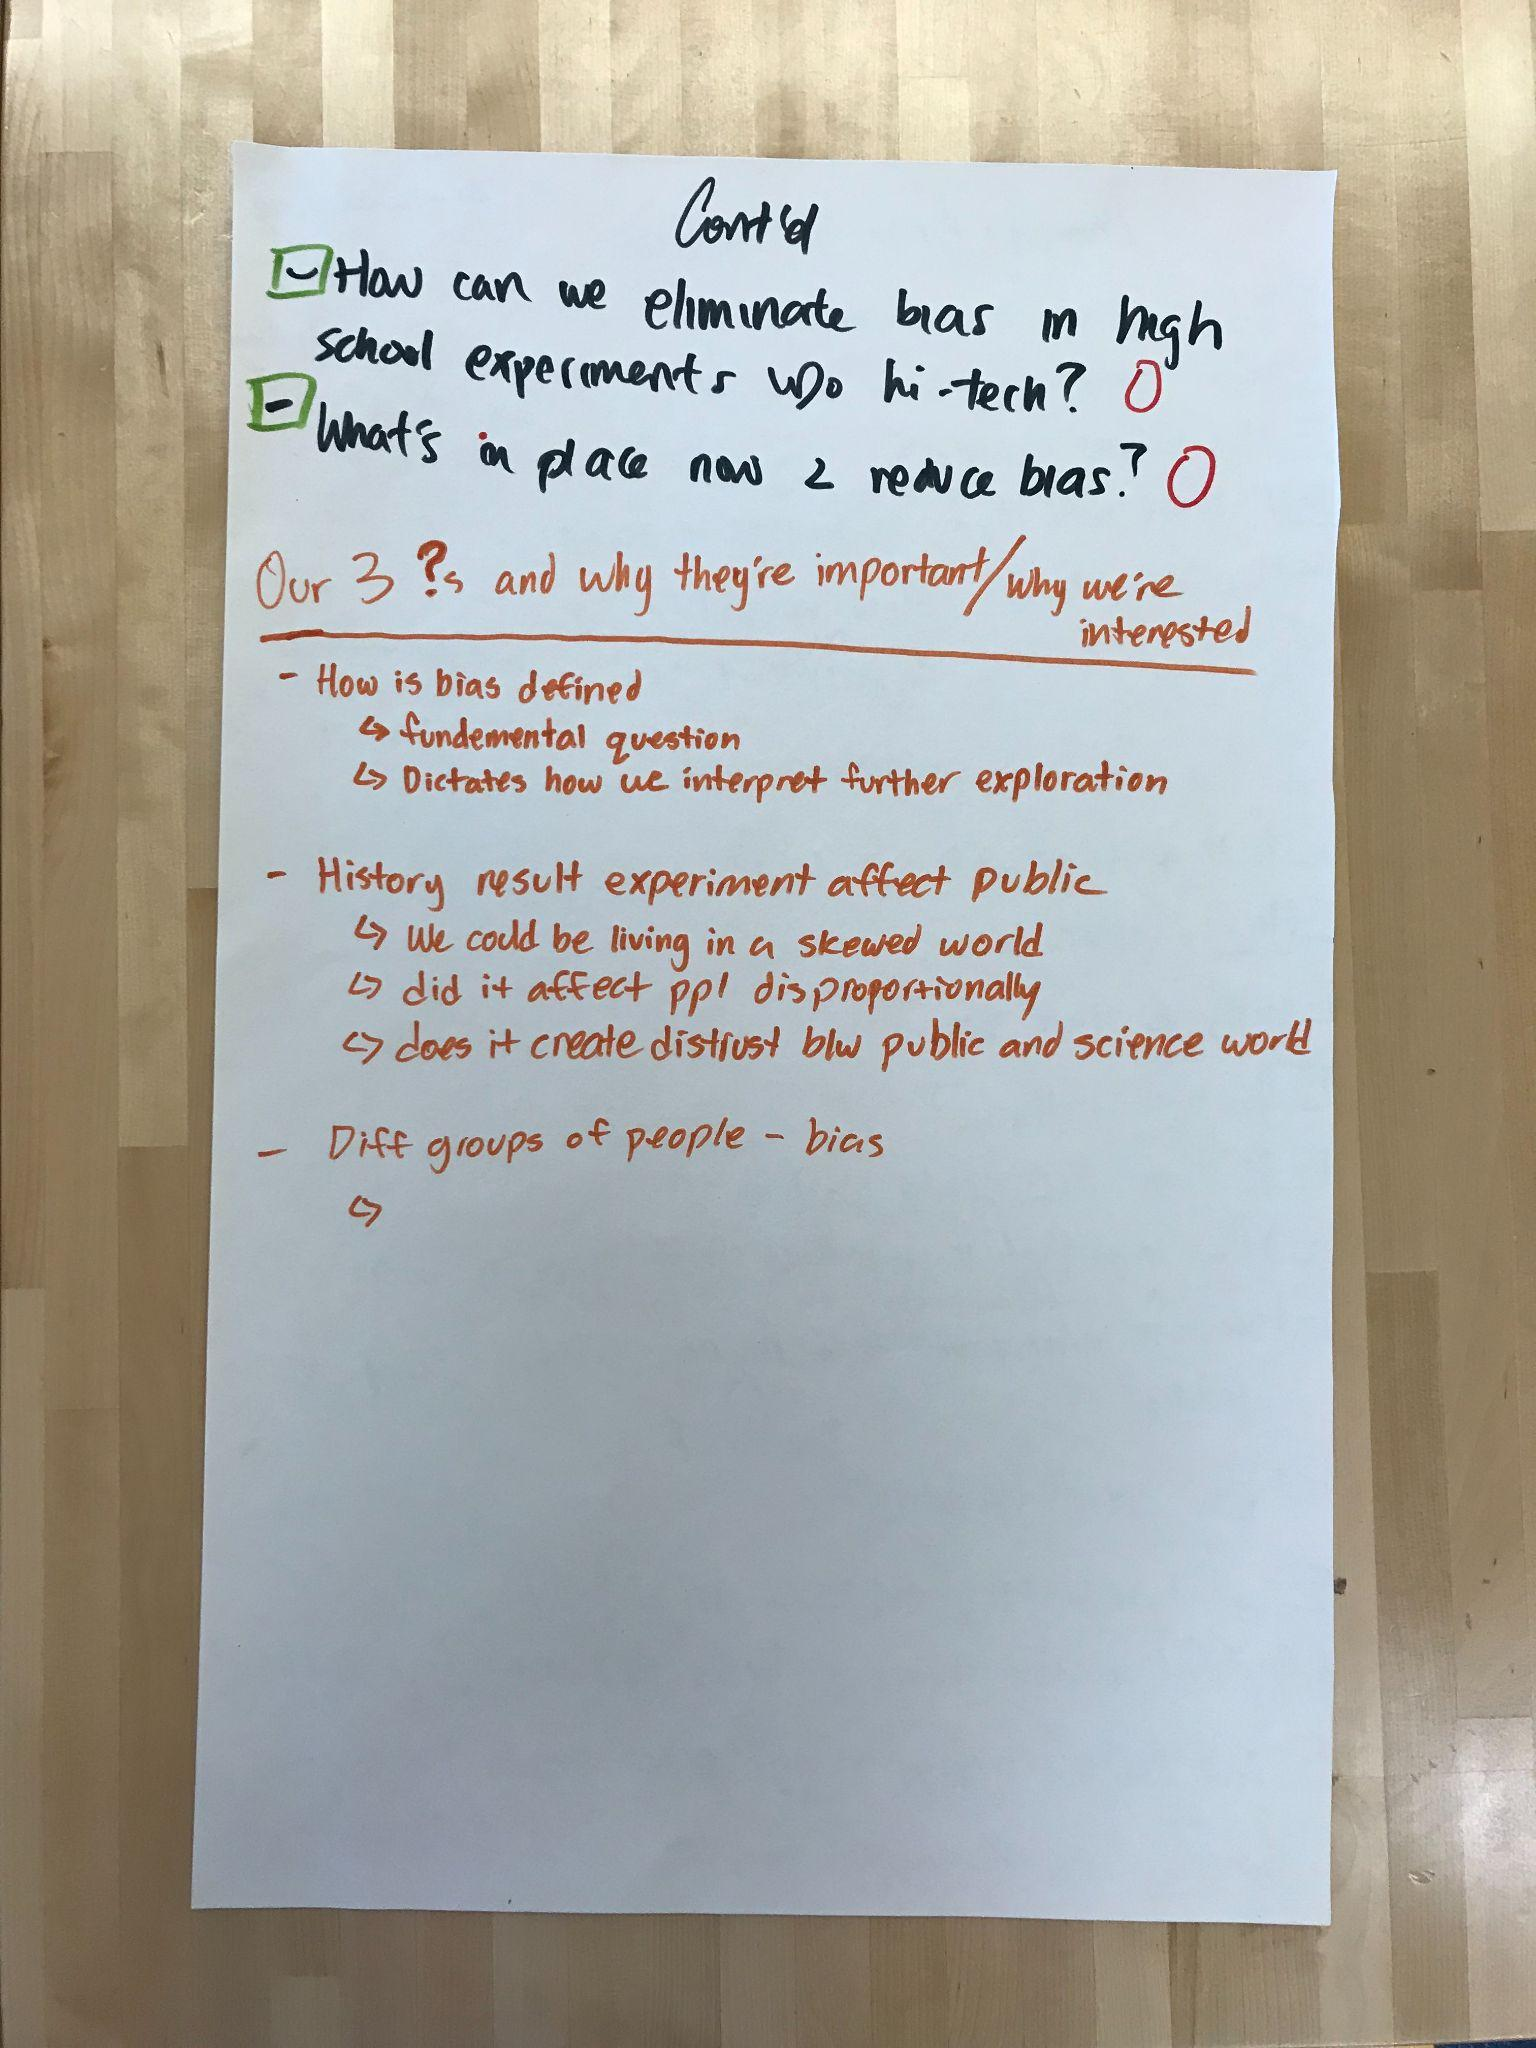 Cont'd
- How can we eliminate bias in high
school experiments w/o hi-tech? O
- What's in place now 2 reduce bias? O
Our 3 ?s and why they're important/why we're
interested
- How is bias defined
↳ fundemental question
↳ Dictates how we interpret further exploration
- History result experiment affect public
↳ We could be living in a skewed world
↳ did it affect ppl disproportionally
↳ does it create distrust b/w public and science world
- Diff groups of people - bias
↳